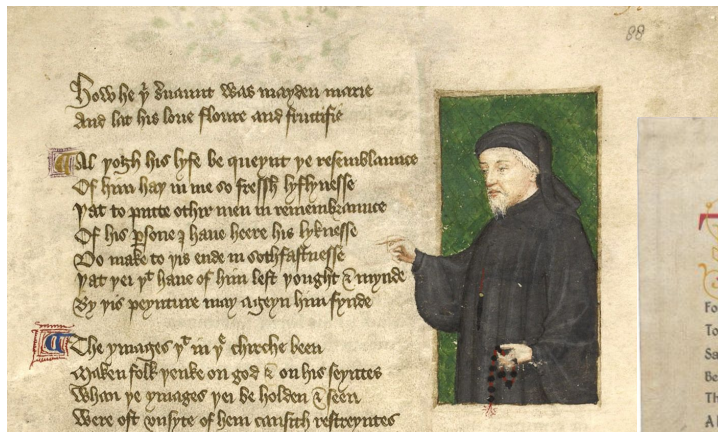 88
How he þͥ s̉uaunt was mayden marie
And lat his loue floure and fructifie
Al þogh his lyfe be queynt þe resemblaunce
Of him haþ in me so fressh lyflynesse
Þat to putte othir men in remembraunce
Of his ꝑsone I haue heere his lyknesse
Do make to þis ende in sothfastnesse
Þat þei þͭ haue of him left þought & mynde
By þis peynture may ageyn him fynde
The ymages þͭ in þͤ chirche been
Maken folk þenke on god & on his seyntes
Whan þe ymages þei be holden & seen
Were oft vnsyte of hem causith restreyntes
Fo
To
Sa
Be
Th